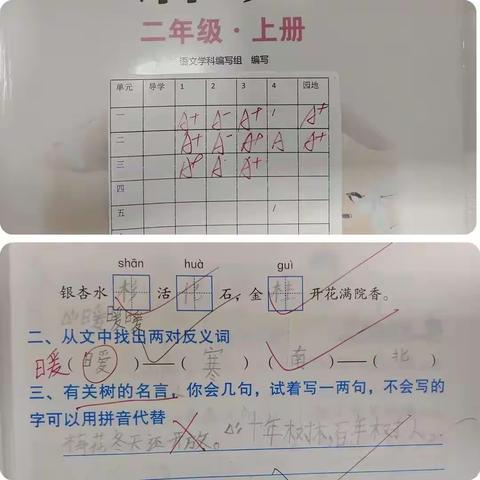 二年级·上册
语文学科编写组 编写
单元 导学 1 2 3 4 园地
一 A+ A- A+ A+
二 A+ A- A+ A A+
三 A+ A A+
四
五
shān huà guì
银杏水 杉 活 化 石，金 桂 开花满院香。
暖 暖
二、从文中找出两对反义词
日爱（ 日爱 ）—（ 寒 ）（ 南 ）—（ 北 ）
三、有关树的名言，你会几句，试着写一两句，不会写的
字可以用拼音代替
梅花冬天还开放。十年树木，百年树人。